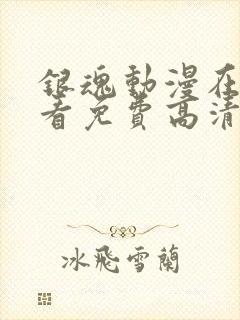 銀魂動漫在
看免費高清
冰飛雪蘭